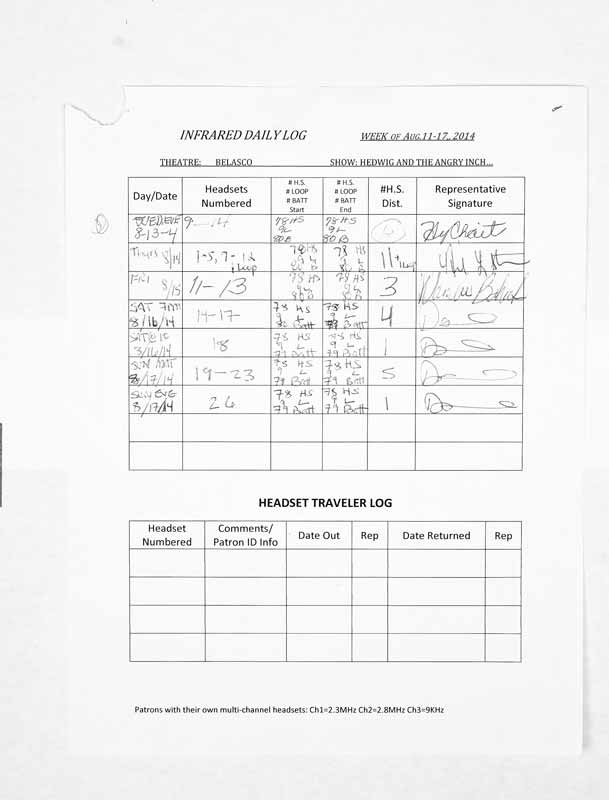 INFRARED DAILY LOG WEEK OF AUG.11-17,, 2014
THEATRE: BELASCO SHOW: HEDWIG AND THE ANGRY INCH...
Day/Date Headsets Numbered # H.S. # LOOP # BATT Start # H.S. # LOOP # BATT End #H.S. Dist. Representative Signature
8-13-4 9-14 78 HS 9L 80 B 78 HS 9L 80 B 6
Thurs 8/14 1-5, 7-12 1 Loop 78 HS 9 L 80 B 78 HS 9 L 80 B 11 + 1 Loop
FRI 8/15 11-13 78 HS 9 L 80 B 78 HS 9 L 80 B 3
SAT 7PM 8/16/14 14-17 78 HS 9 L 80 Batt 78 HS 9 L 79 Batt 4
SAT@10 8/16/14 18 78 HS 9 L 79 Batt 78 HS 9 L 79 Batt 1
SUN MAT 8/17/14 19-23 78 HS 9 L 79 Batt 78 HS 9 L 79 Batt 5
SUN EVE 8/17/14 26 78 HS 9 L 79 Batt 78 HS 9 L 79 Batt 1
HEADSET TRAVELER LOG
Headset Numbered Comments/ Patron ID Info Date Out Rep Date Returned Rep
Patrons with their own multi-channel headsets: Ch1=2.3MHz Ch2=2.8MHz Ch3=9KHz